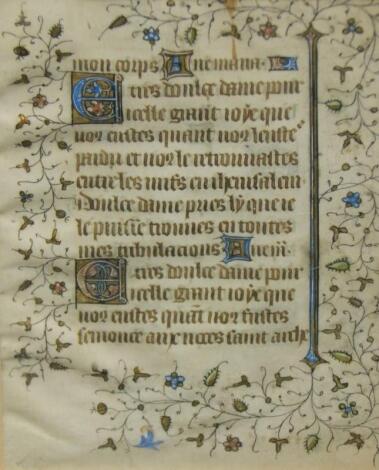 mon corps Aue maria.
E tres doulce dame pour
icelle grant ioye que
vos eustes quant vos leuste
perdu et vos le retrouuastes
entre les iuifs en iherusalem.
Doulce dame pries ly que ie
le puisse trouuer en toutes
mes tribulacions Aue m̃.
E tres doulce dame pour
icelle grant ioye que
vos eustes quãt vos fustes
semonce aux noces saint arch